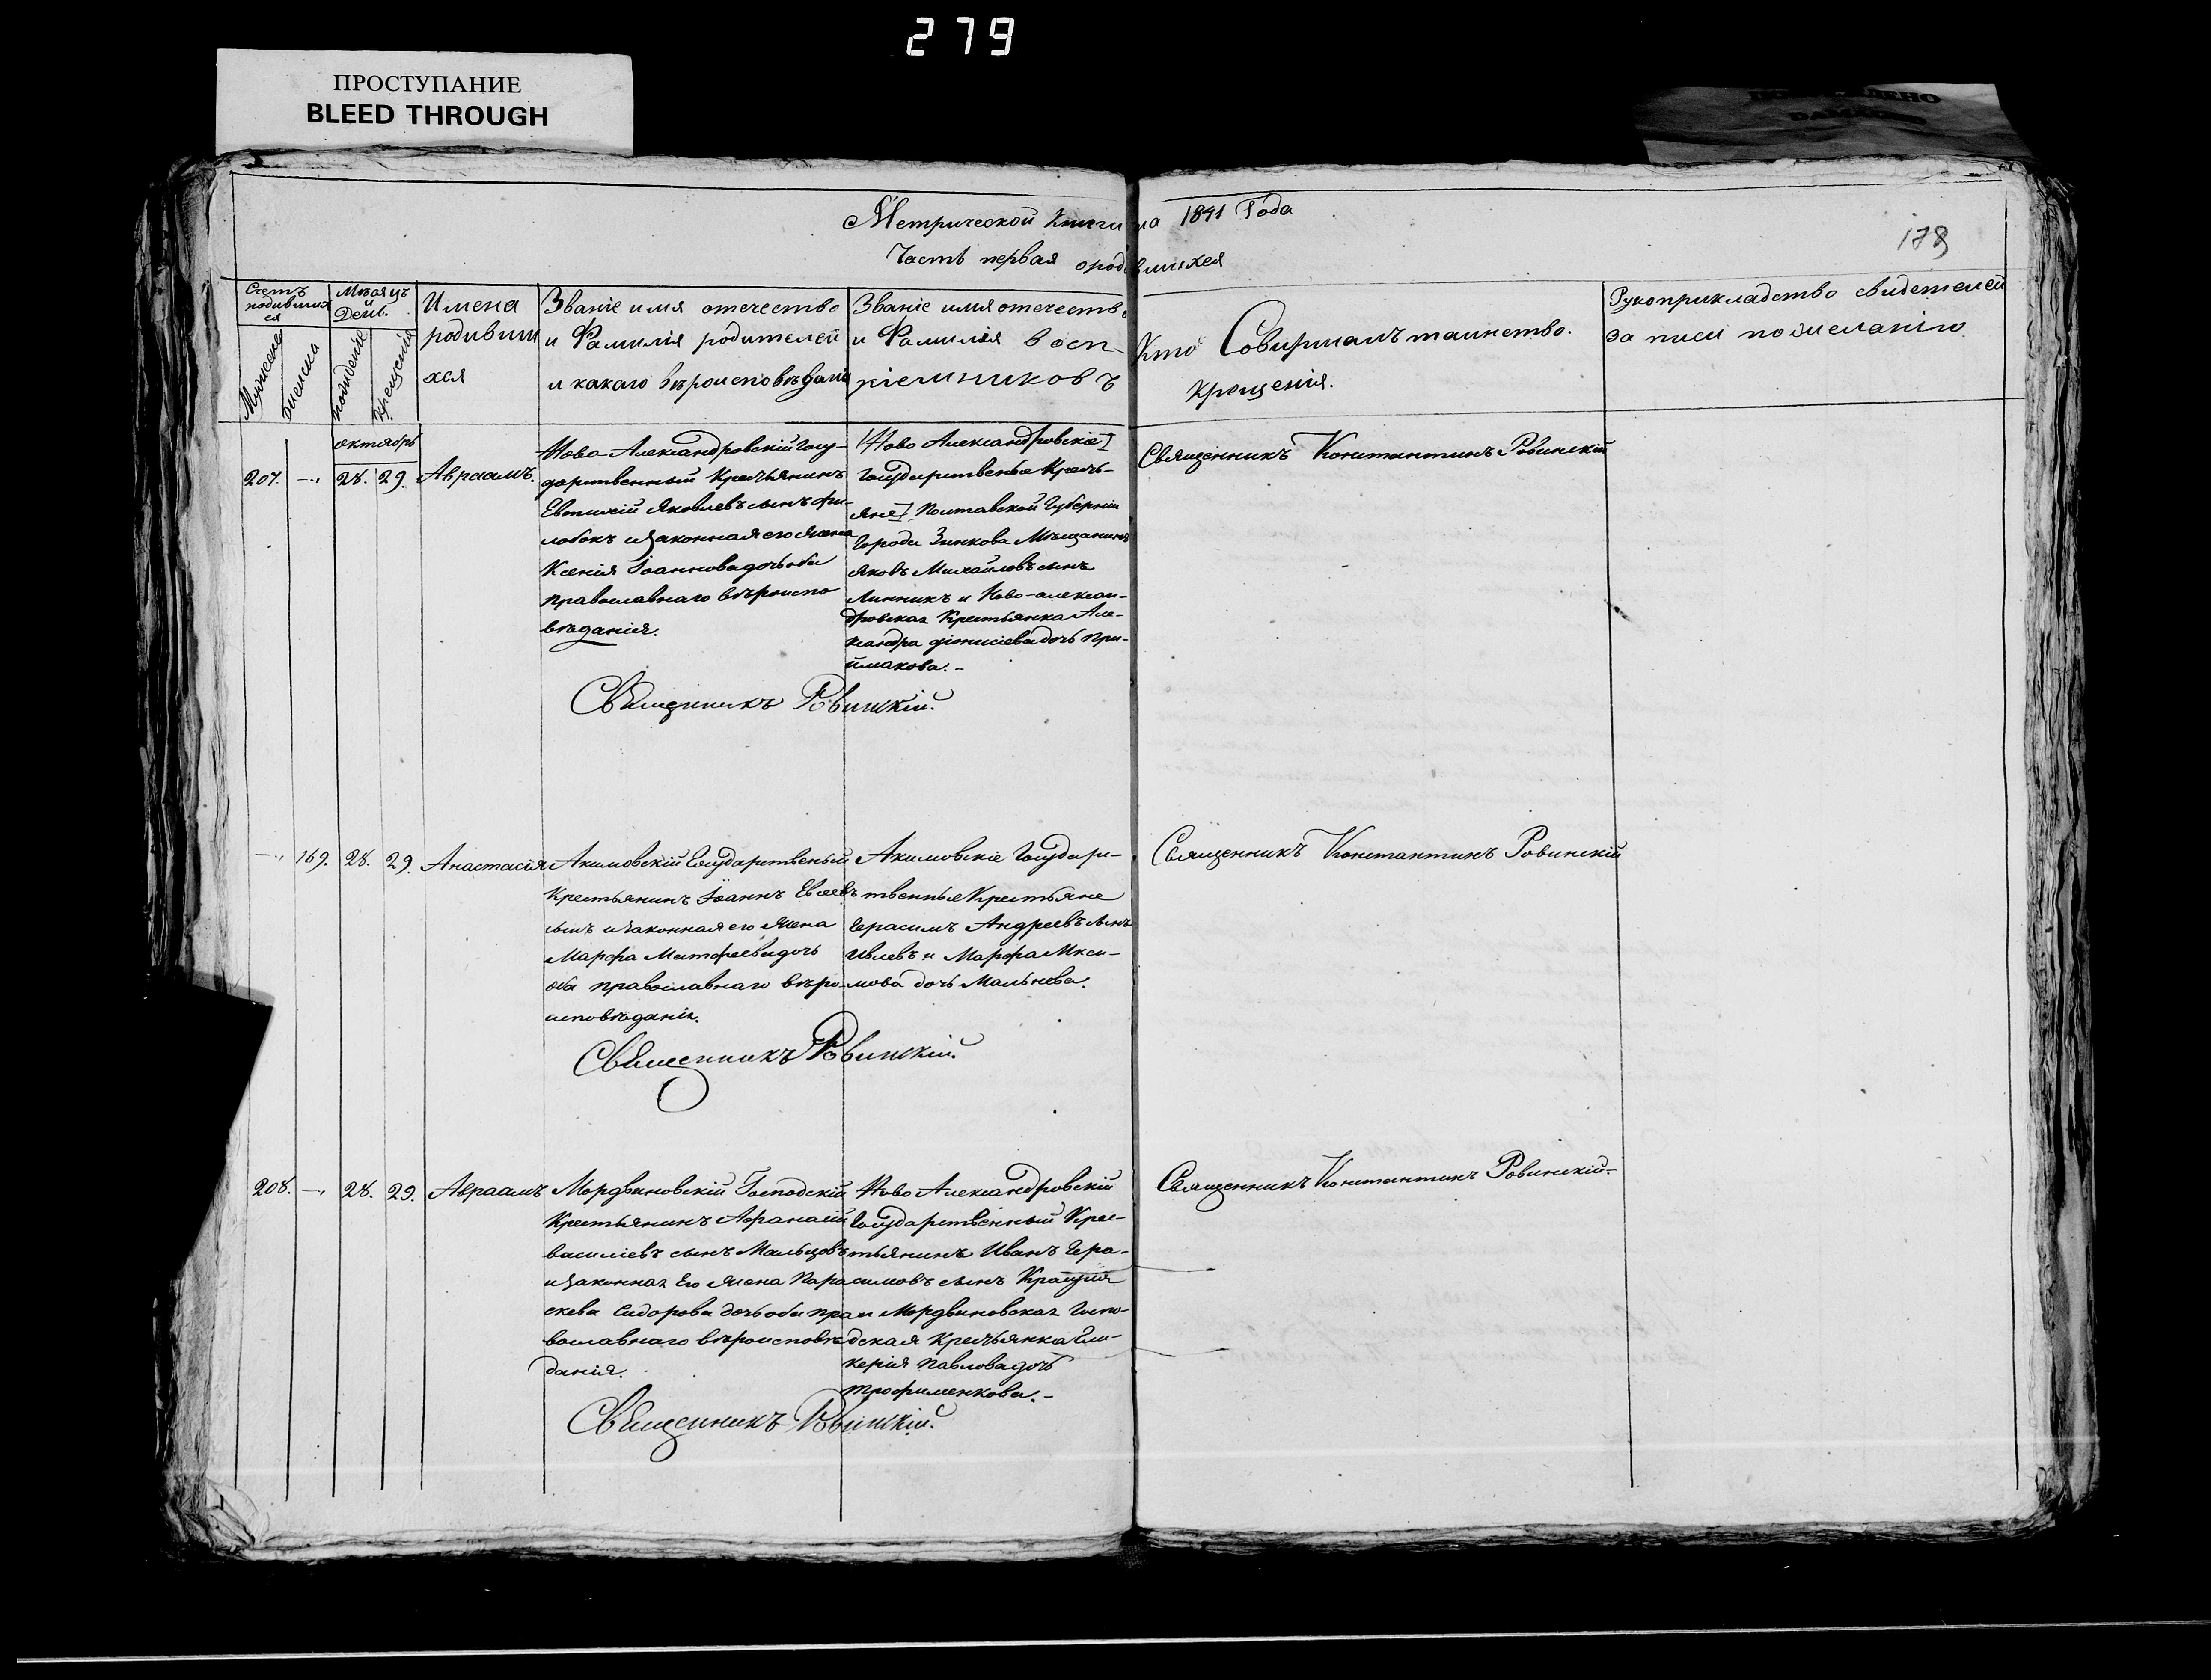 279
ПРОСТУПАНИЕ
BLEED THROUGH
Метрической Книги на 1841 Года
Часть первая о родившихся
178
Счетъ родившихся
Мужеска
женска
Мѣсяцъ и День.
рождение
крещения
Имена родившихся
Званіе имя отечество
и Фамилія родителей
и какаго вѣроисповѣданія
Званіе имя отечество
и Фамилія восп-
ріемниковъ
Кто Совиршалъ таинство.
Крещенія.
Рукоприкладство свидетелей
за писи по желанію
октябрь
207. — 28. 29. Авраамъ.
Ново-Александровскій Госу-
дарственный Крестьянинъ
Евтихій Яковлевъ сынъ Фи-
лобокъ и законная его жена
Ксенія Іоаннова дочь оба
православнаго вѣроиспо
вѣданія.
[Ново Александровскіе]
Государственые Кресть-
яне] Полтавской Губерніи
Города Зинкова Мѣщанинъ
Яковъ Михайловъ сынъ
Линникъ и Ново-алексан-
дровская Крестьянка Але-
ксандра Діонисіева дочь При-
ймакова.-
Священникъ Константинъ Ровинскій
Священникъ Ровинскій.
— 169. 28. 29. Анастасія
Акимовскій Государственый
Крестьянинъ Іоаннъ Евсеевъ
сынъ и законная его жена
Марфа Матфеева дочь
оба православнаго вѣро-
исповѣданія.
Акимовскіе Государс-
твенные Крестьяне
Герасимъ Андреевъ сынъ
Ивлевъ и Марфа Макси-
мова дочь Мальнева.
Священникъ Константинъ Ровинскій
Священникъ Ровинскій.
208. — 28. 29. Авраамъ
Мордвиновскій Господскій
Крестьянинъ Афанасій
Василіевъ сынъ Мальцовъ
и законная Его жена Пара
скева Сидорова дочь оба пра
вославнаго вѣроисповѣ
данія.
Ново Александровскій
Государственный Крес-
тьянинъ Иванъ Гера-
симовъ сынъ
и Мордвиновская Госпо-
дская Крестьянка Гли-
керія Павлова дочь
Трофименкова.-
Священникъ Константинъ Ровинскій-
Священникъ Ровинскій.